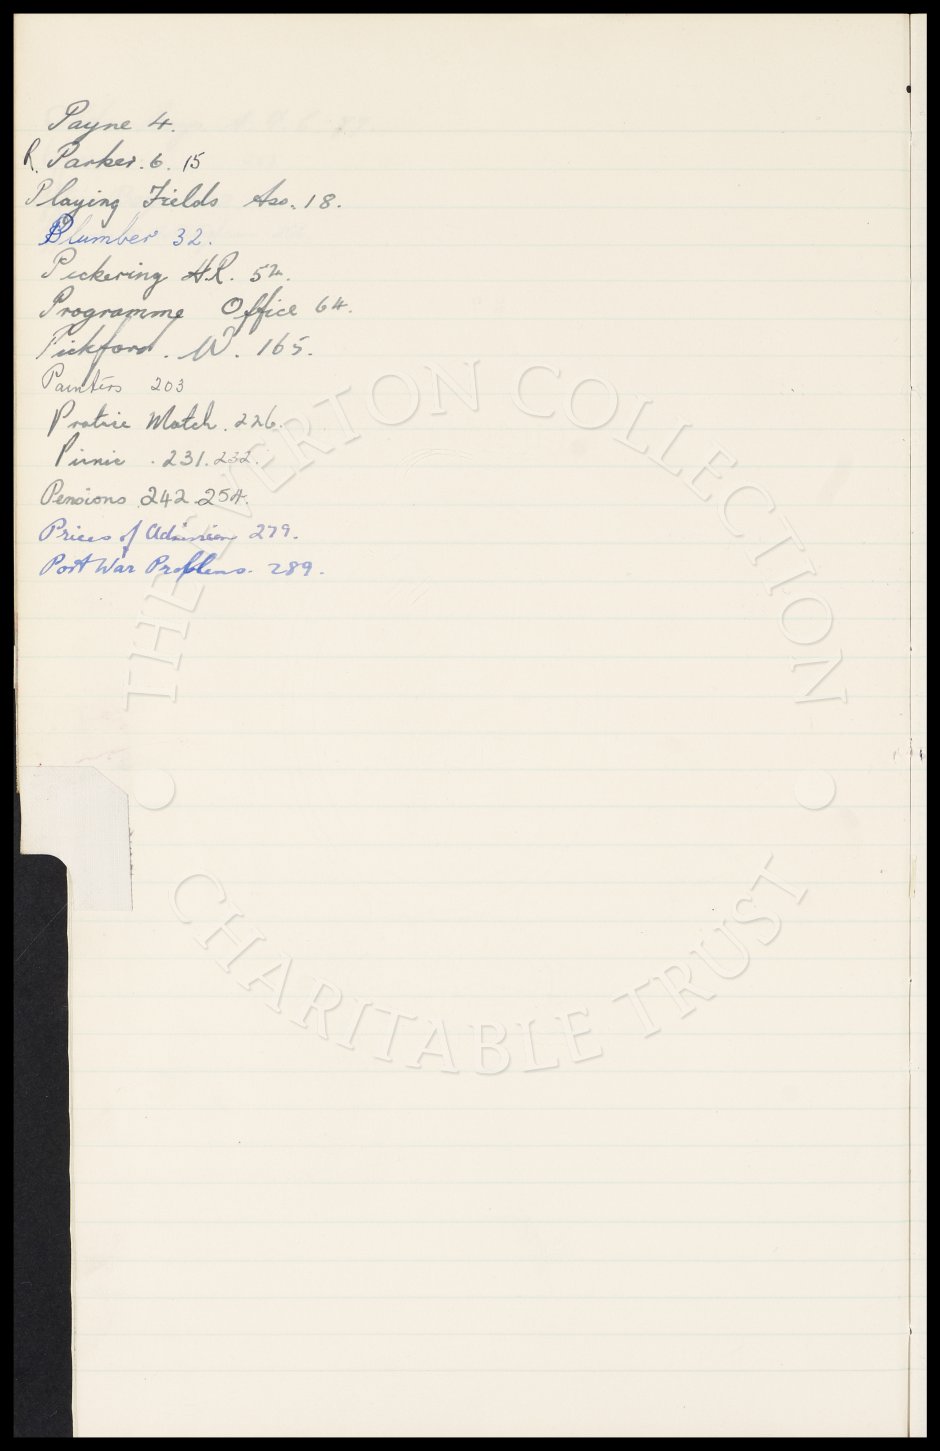 Payne 4.
R. Parker. 6. 15
Playing Fields Ass. 18.
Plumber 32.
Pickering H.R. 54.
Programme Office 64.
Pickford. W. 165.
Painters 203
Match. 226.
Picnic. 231. 232.
Pensions 242. 254.
Prices of Admission 279.
Post War Problems. 289.
THE EVERTON COLLECTION
CHARITABLE TRUST